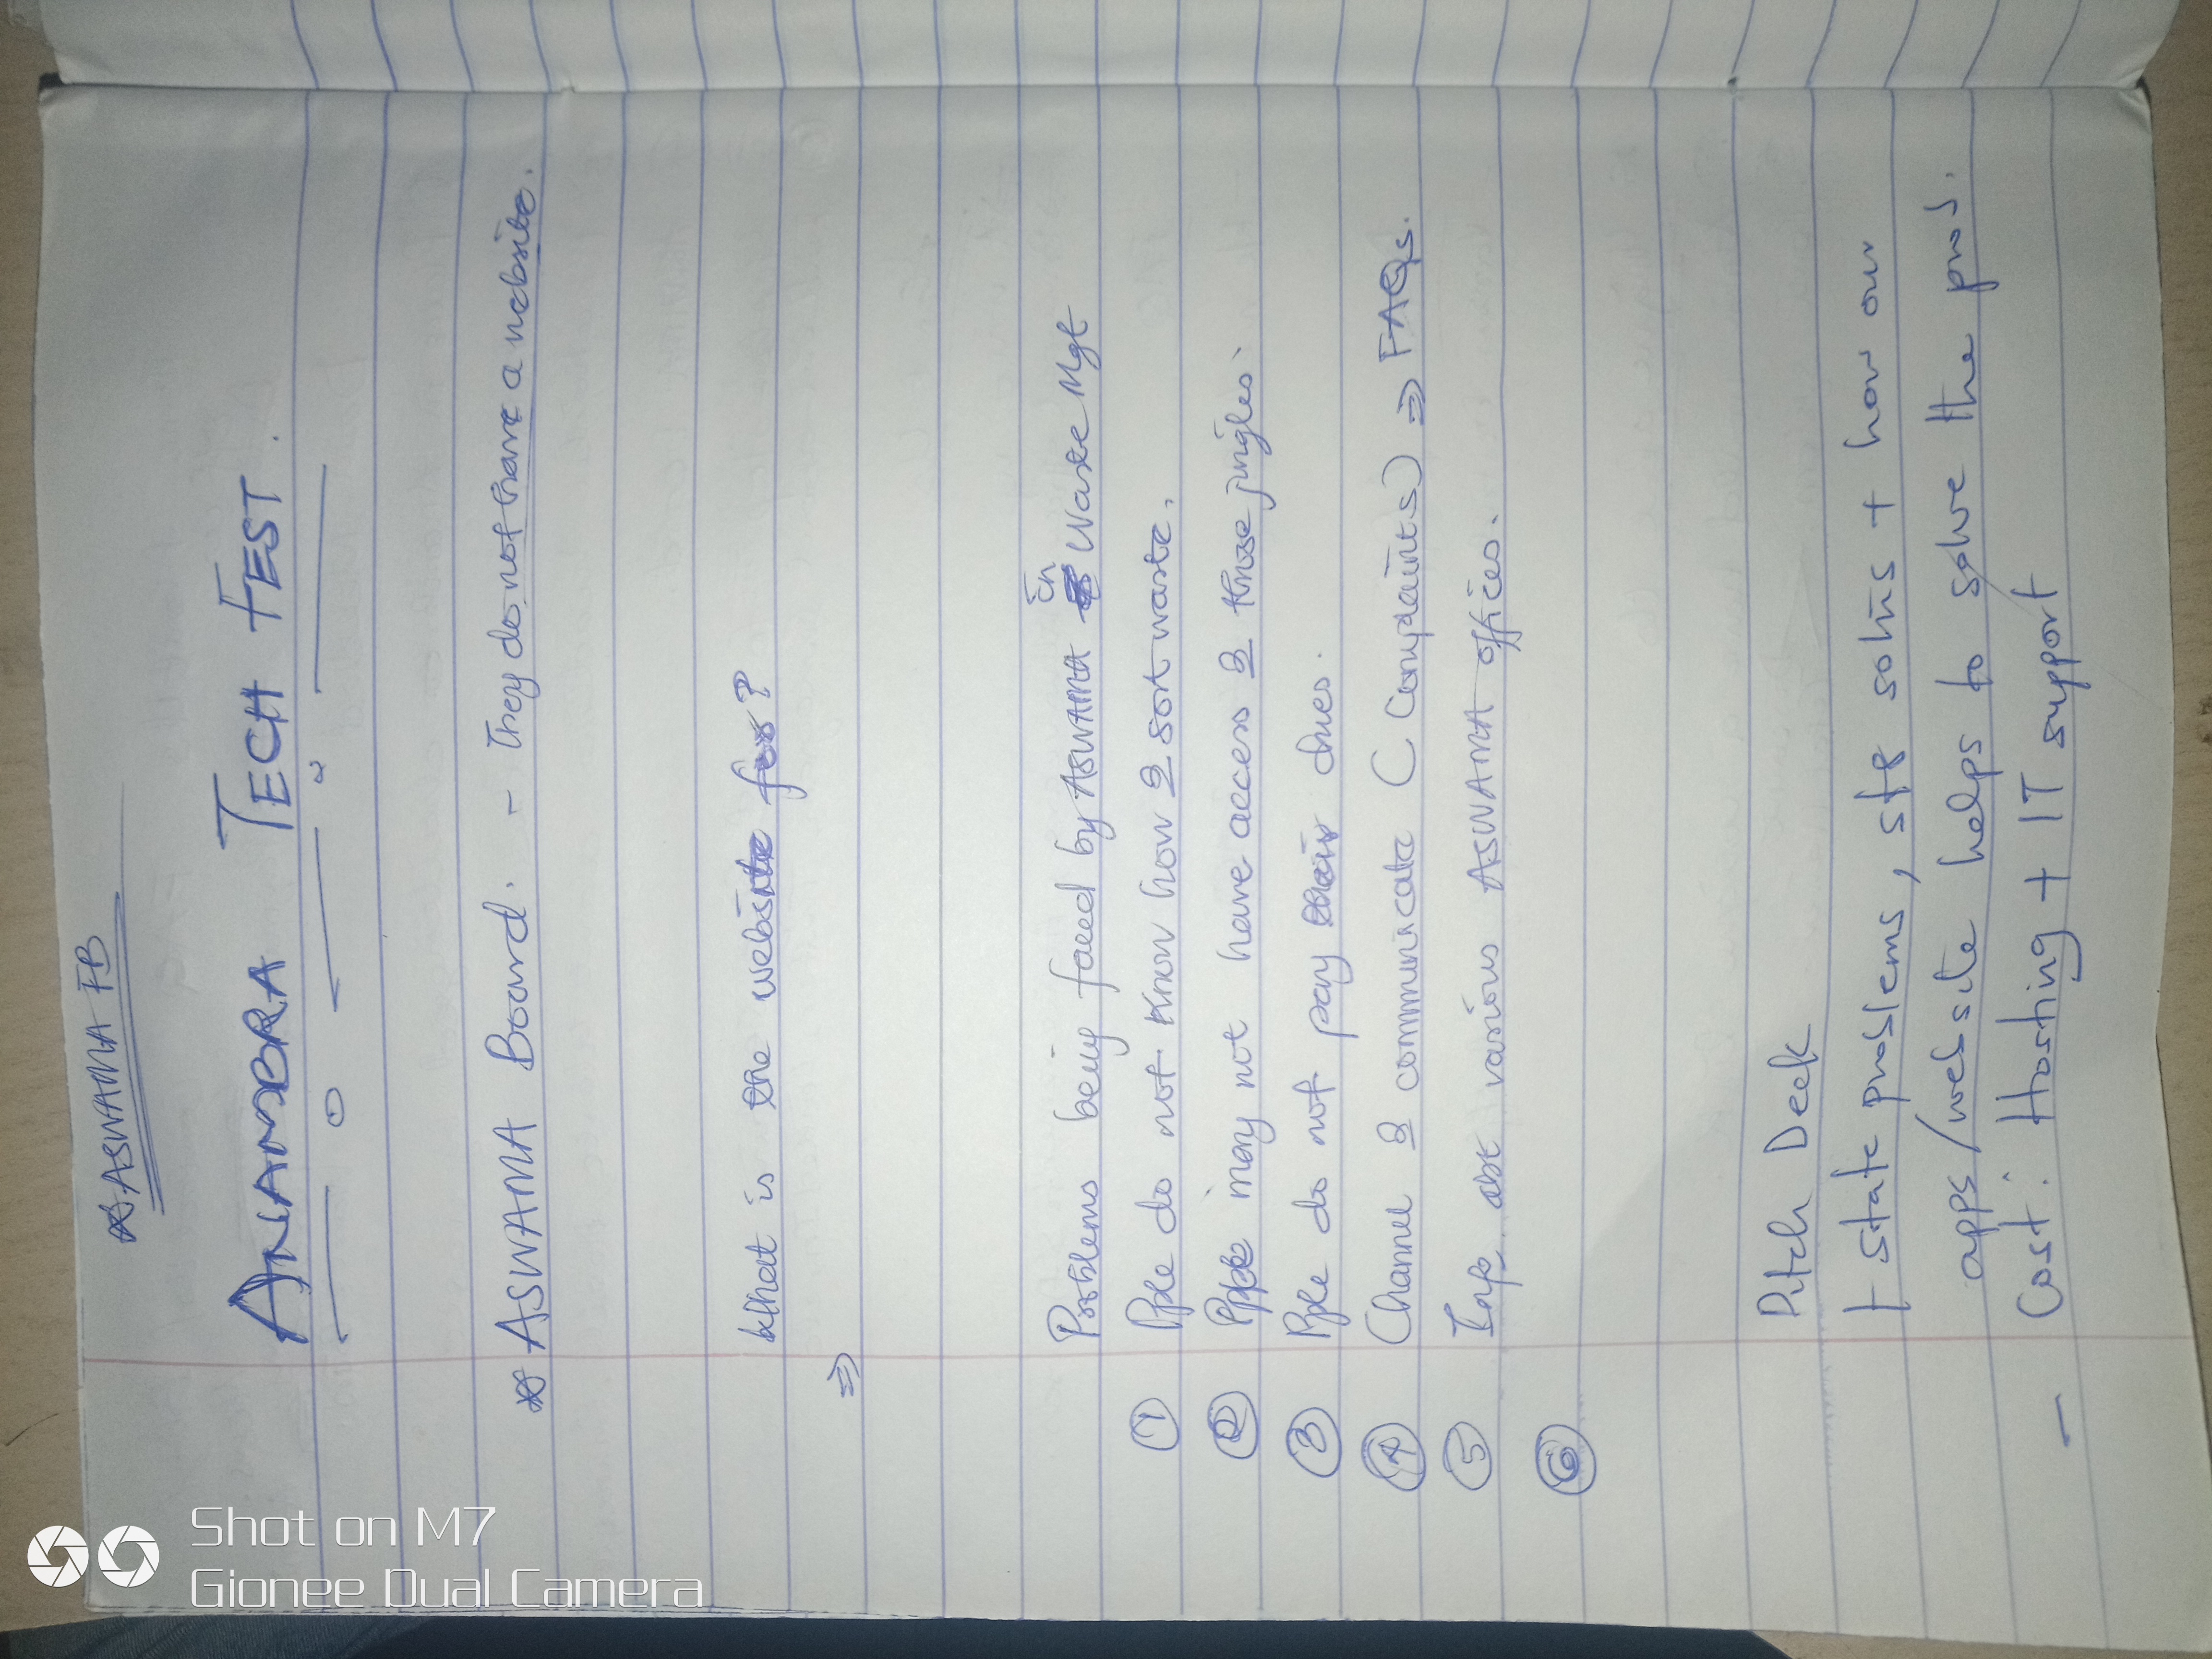 * ASWAMA FB
ANAMBRA TECH FEST.
* ASWAMA Board. - They do not have a website.
What is the website for?
⇒
Problems being faced by ASWAMA in Waste Mgt
① Pple do not know how 2 sort waste.
② Pple may not have access 2 those jingles.
③ Pple do not pay their dues.
④ Channel 2 communicate (Complaints) ⇒ FAQs.
⑤ Info abt various ASWAMA offices.
⑥
Pitch Deck
+ state problems, solns + how our
apps/website helps to solve the prob.
- Cost: Hosting + IT support
Shot on M7
Gionee Dual Camera